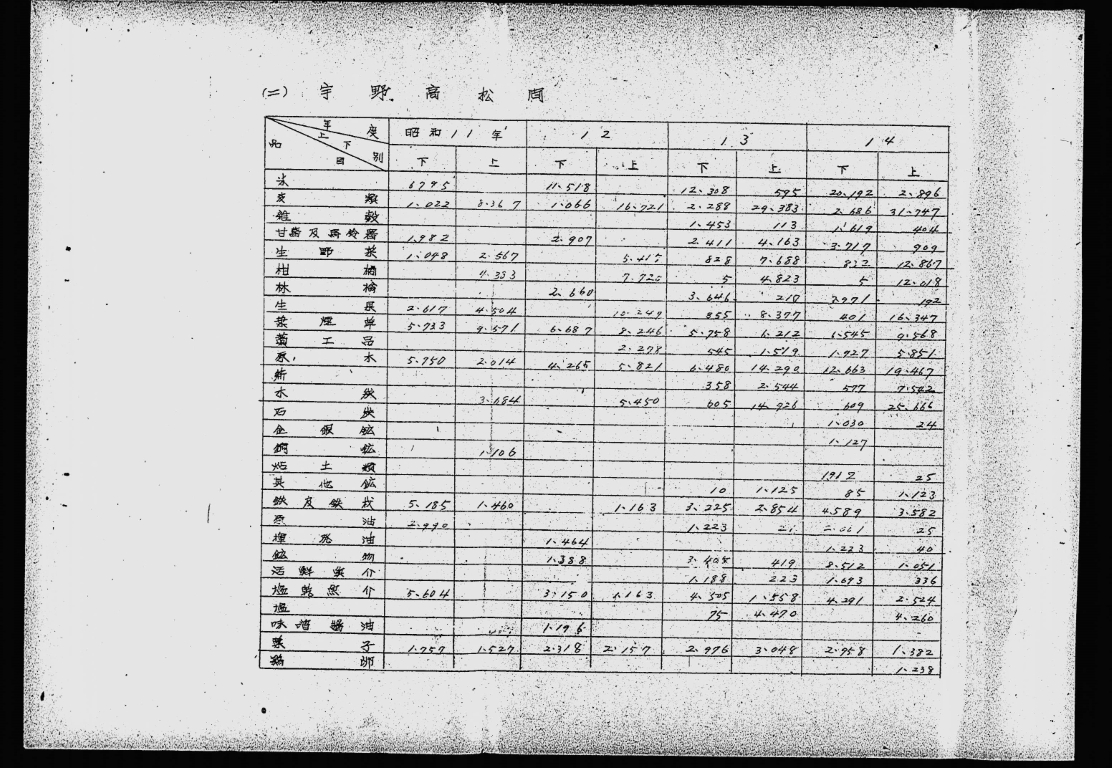 (二) 宇野高松間
年度 上下別 品目 昭和11年 12 13 14
下 上 下 上 下 上 下 上
米 6795 11.518 12.308 595 20.192 2.896
麦類 1.022 8.367 1.066 16.721 2.288 29.383 2.686 31.747
雑穀 1.453 113 1.619 404
甘藷及馬鈴薯 1.982 2.907 2.411 4.163 3.717 909
生野菜 1.048 2.567 5.415 828 7.688 832 12.867
柑橘 4.333 7.725 5 4.823 5 12.018
林檎 2.660 3.646 217 192
生果 2.617 4.504 10.249 855 8.377 401 16.347
葉煙草 5.733 9.571 6.687 8.246 5.758 1.212 1.545 9.568
藁工品 2.278 545 1.519 1.927 5.851
原木 5.750 2.014 4.265 5.821 6.480 14.290 12.663 19.467
薪 358 2.544 577 7.542
木炭 3.684 5.450 605 14.926 609 25.666
石炭 1.030 24
金銀鉱 1.127
銅鉱 1.106
粘土類 1912 25
其他鉱 10 1.125 85 1.123
鉄及鉄製 5.185 1.460 1.163 3.225 2.854 4.589 3.582
油 2.990 1.223 25
油 1.464 1.223 40
鉱物 1.388 3.405 419 8.512 1.051
活鮮魚介 1.188 223 1.693 336
塩乾魚介 5.604 3.150 1.163 4.505 1.558 4.291 2.524
塩 75 4.470 4.260
味噌醤油 1.196
菓子 1.757 1.527 2.318 2.157 2.976 3.048 2.958 1.382
鶏卵 1.238